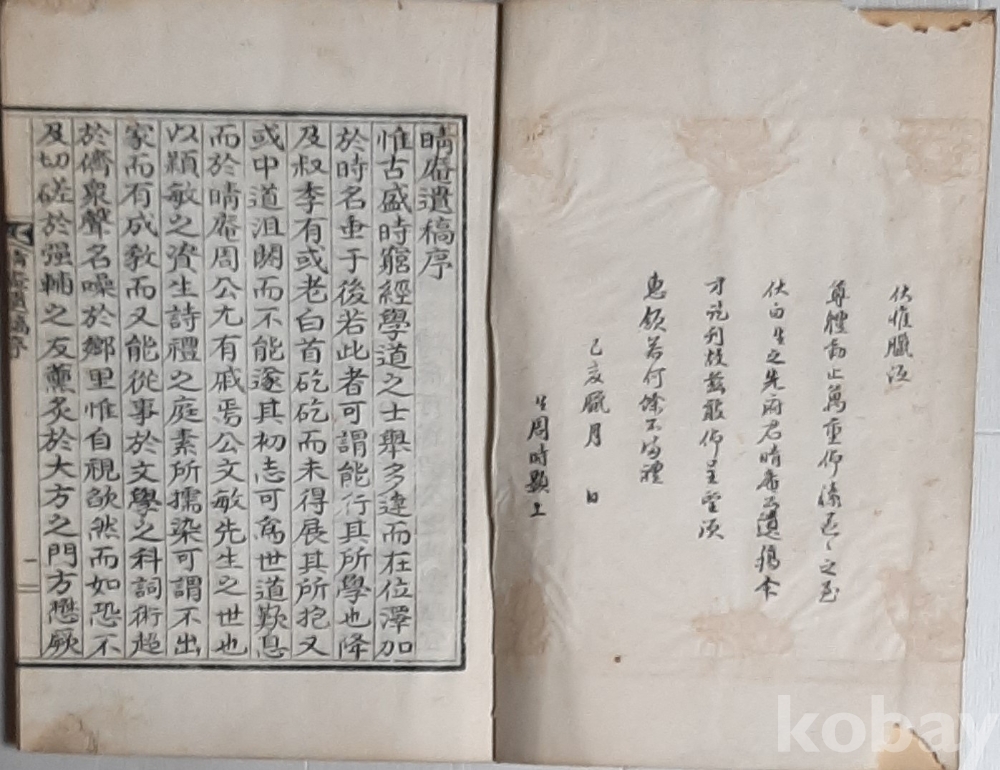 伏惟臘沍
尊體動止萬重仰溸區〻之至
伏白生之先府君晴庵公遺稿今
才訖刊故玆敢仰呈望須
惠領若何餘不備禮
己亥臘月 日
生周時顯 上
晴庵遺稿序
惟古盛時窮經學道之士擧多達而在位澤加
於時名垂于後若此者可謂能行其所學也降
及叔季有或老白首矻矻而未得展其所抱又
或中道沮閼而不能遂其初志可爲世道歎息
而於晴庵周公尤有戚焉公文敏先生之世也
以穎敏之資生詩禮之庭素所擩染可謂不出
家而有成敎而又能從事於文學之科詞術超
於儕衆聲名噪於鄕里惟自視欿然而如恐不
及切磋於强輔之友薰炙於大方之門方懋厥
晴庵遺稿序 一
kobay